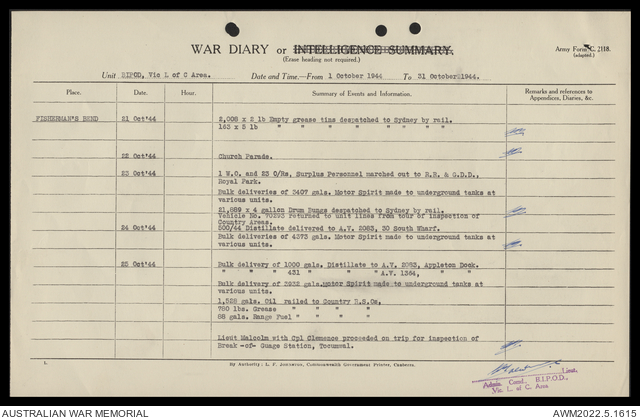 WAR DIARY or INTELLIGENCE SUMMARY.
(Erase heading not required.)
Army Form C. 2118.
(adapted.)
Unit BIPOD, Vic L of C Area. Date and Time.—From 1 October 1944 To 31 October 1944.
Place. Date. Hour. Summary of Events and Information. Remarks and references to Appendices, Diaries, &c.
FISHERMAN'S BEND 21 Oct'44 2,008 x 2 lb Empty grease tins despatched to Sydney by rail.
163 x 5 lb " " " " " " "
22 Oct'44 Church Parade.
23 Oct'44 1 W.O. and 23 O/Rs, Surplus Personnel marched out to R.R. & G.D.D.,
Royal Park.
Bulk deliveries of 3407 gals. Motor Spirit made to underground tanks at
various units.
21,889 x 4 gallon Drum Bungs despatched to Sydney by rail.
Vehicle No. 70293 returned to unit lines from tour of inspection of
Country Areas.
24 Oct'44 500/44 Distillate delivered to A.V. 2083, 20 South Wharf.
Bulk deliveries of 4373 gals. Motor Spirit made to underground tanks at
various units.
25 Oct'44 Bulk delivery of 1000 gals. Distillate to A.V. 2083, Appleton Dock.
" " " 431 " " " A.V. 1364, " "
Bulk delivery of 3932 gals. motor Spirit made to underground tanks at
various units.
1,528 gals. Oil railed to Country R.S.Os.
780 lbs. Grease " " " "
88 gals. Range Fuel " " " "
Lieut Malcolm with Cpl Clemence proceeded on trip for inspection of
Break -of- Guage Station, Tocumwal.
1.
By Authority: L. F. Johnston, Commonwealth Government Printer, Canberra.
Lieut.
Admin. Comd. B.I.P.O.D.,
Vic L. of C. Area
AUSTRALIAN WAR MEMORIAL
AWM2022.5.1615